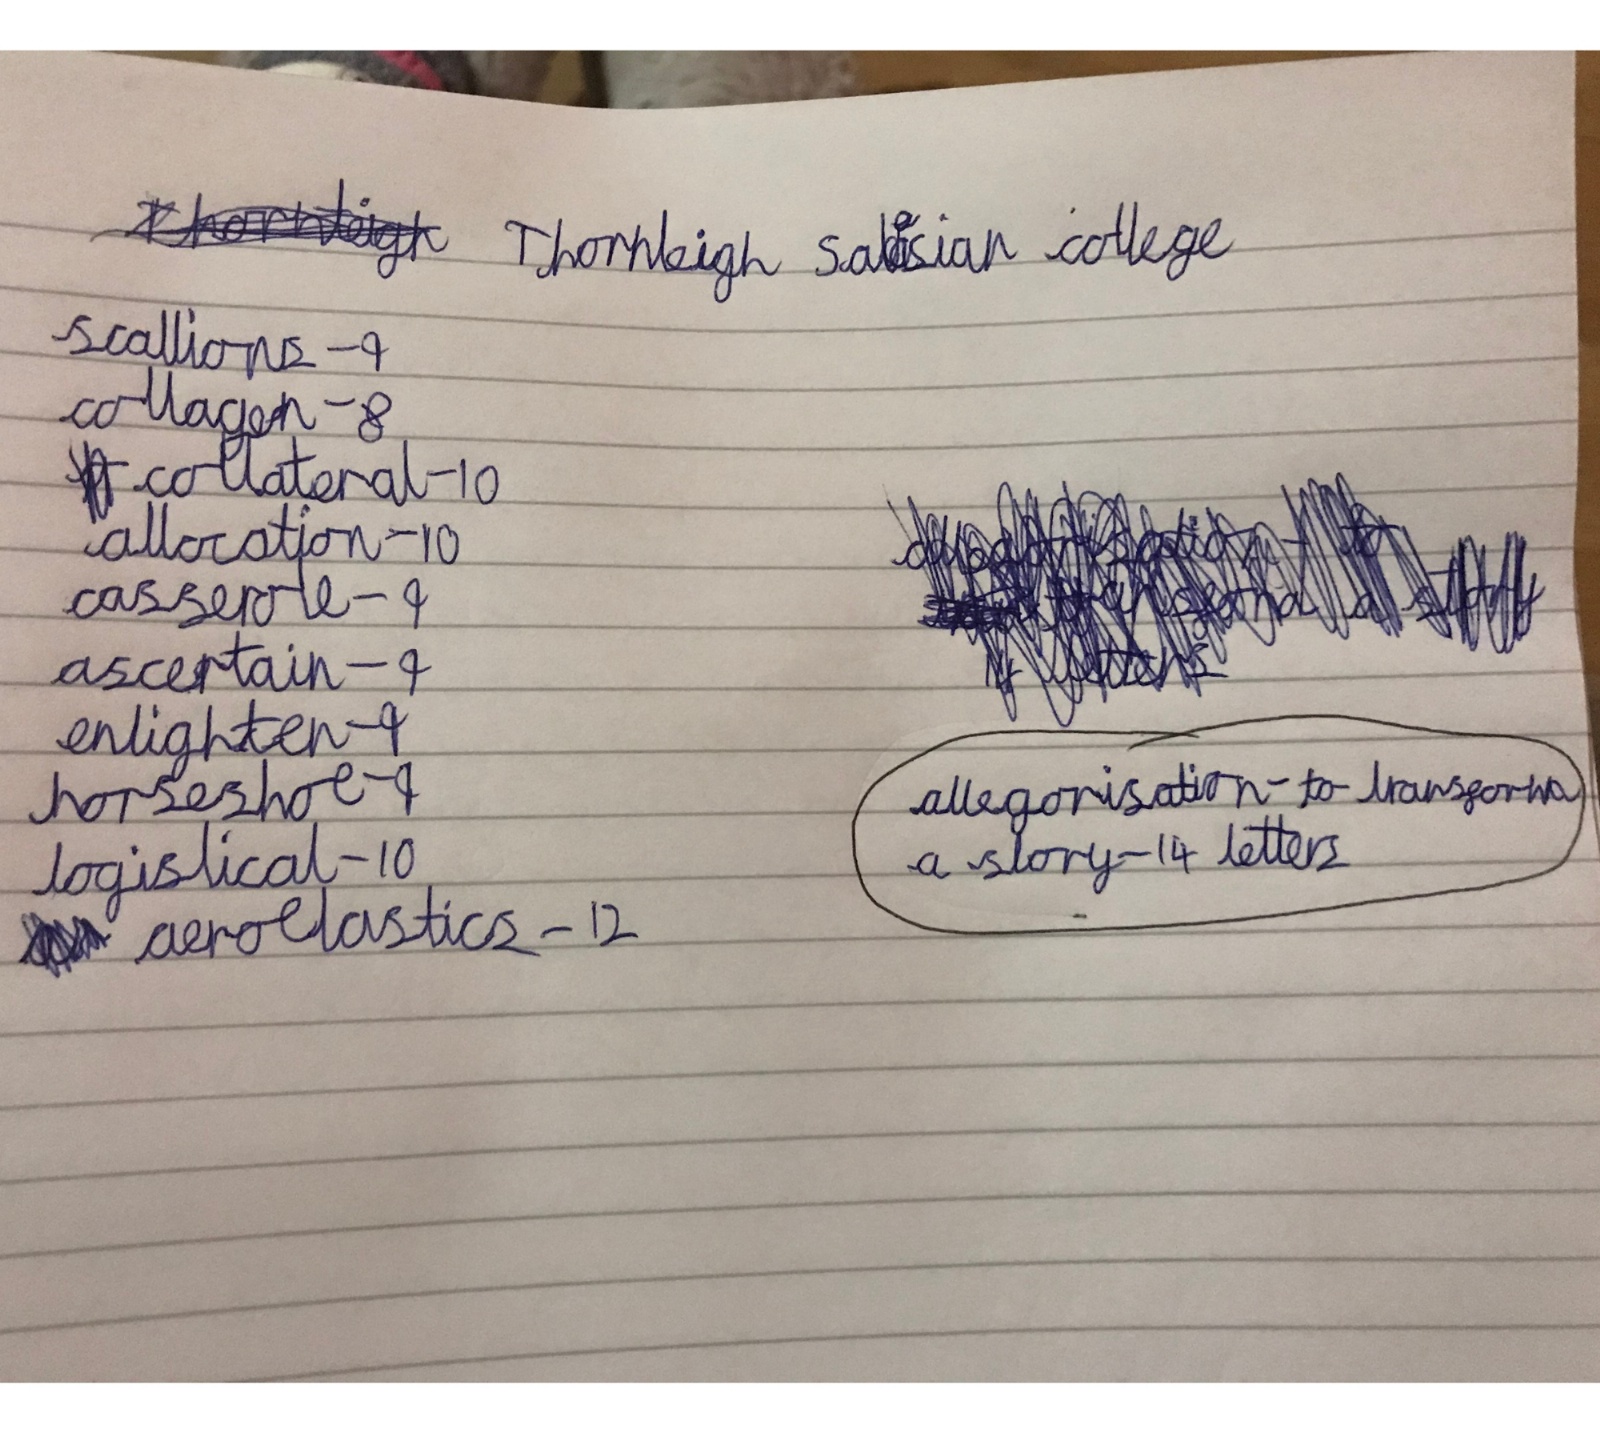 Thornleigh Thornleigh Salesian college
scallions-9
collagen-8
collateral-10
allocation-10
casserole-9
ascertain-9
enlighten-9
horseshoe-9
logistical-10
aeroelastics-12
letters
allegorisation-to transform
a story-14 letters